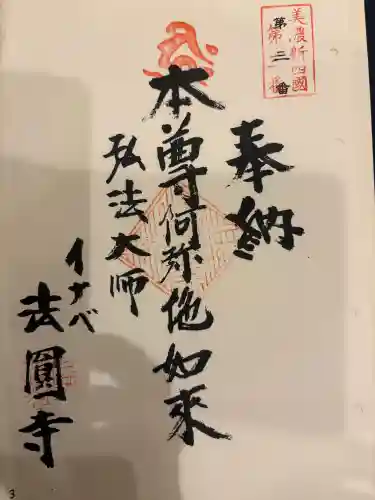 美濃新四國
第二番
奉納
本尊阿弥他如來
弘法大師
イナベ
法圓寺
3